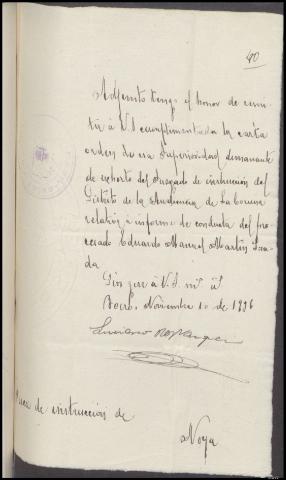 40
Adjunto tengo el honor de remi-
tir á V.S. cumplimentada la carta
orden de esa Superioridad dimanante
de exhorto del Juzgado de instrucción del
Distrito de la Audiencia de La Coruña
relativo á informe de conducta del pro-
cesado Eduardo Manuel Martín
da
Dios gue á V.S. ms. as
Noviembre 10 de 1896
Luciano
Juez de instrucción de
Noya